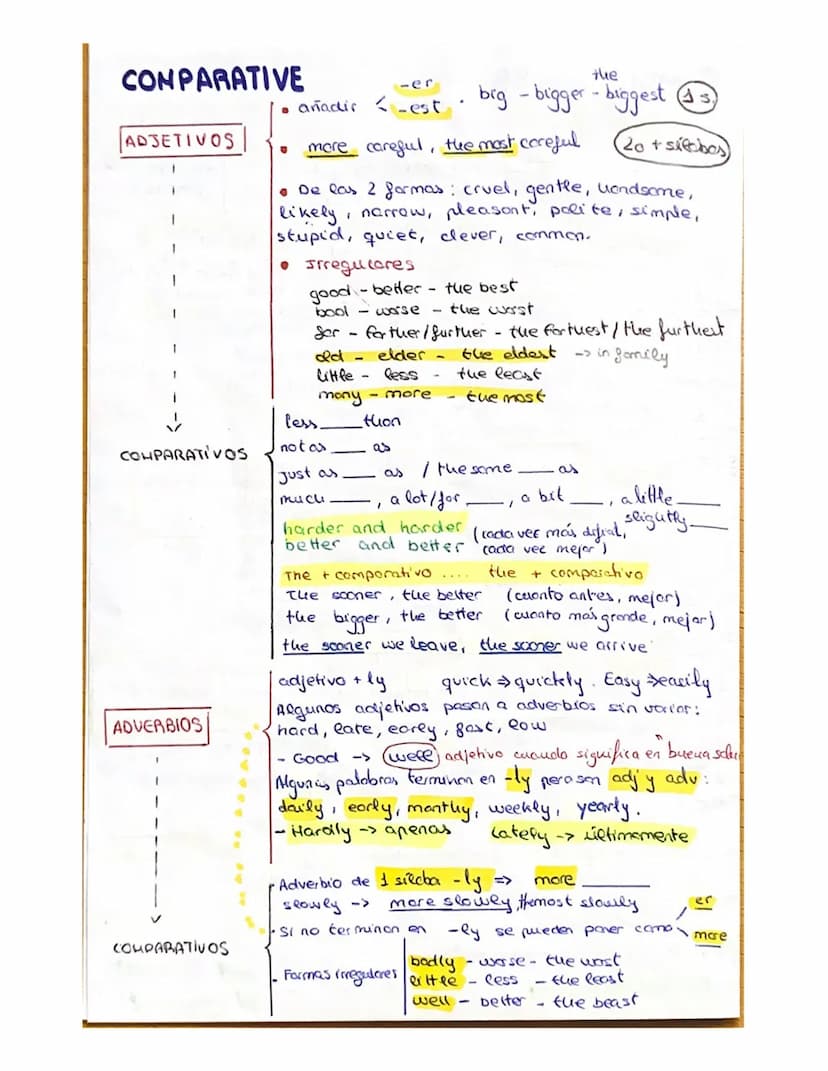 CONPARATIVE
• añadir < -er -est . big - bigger - the biggest (1 s.)
ADJETIVOS
• more careful, the most careful (2 o + sílabas)
• De las 2 formas: cruel, gentle, handsome,
likely, narrow, pleasant, polite, simple,
stupid, quiet, clever, common.
• Irregulares
good - better - the best
bad - worse - the worst
far - farther/further - the farthest / the furthest
old - elder - the eldest -> in family
little - less - the least
many - more - the most
COMPARATIVOS
less ____ than
not as ____ as
just as ____ as / the same ____ as
much ____, a lot/far ____, a bit ____, a little ____
slightly ____
harder and harder (cada vez más difícil,
better and better cada vez mejor)
The + comparativo .... the + comparativo
The sooner, the better (cuanto antes, mejor)
the bigger, the better (cuanto más grande, mejor)
the sooner we leave, the sooner we arrive
ADVERBIOS
adjetivo + ly quick => quickly. Easy => easily
Algunos adjetivos pasan a adverbios sin variar:
hard, late, early, fast, low
- Good -> well adjetivo cuando significa en "buena salu
Algunas palabras terminan en -ly pero son adj y adv:
daily, early, monthy, weekly, yearly.
- Hardly -> apenas Lately -> últimamente
COMPARATIVOS
- Adverbio de 1 sílaba -ly => more ____
slowly -> more slowly, the most slowly
• Si no terminan en -ly se pueden poner como er
more
- Formas irregulares
badly - worse - the worst
little - less - the least
well - better - the beast